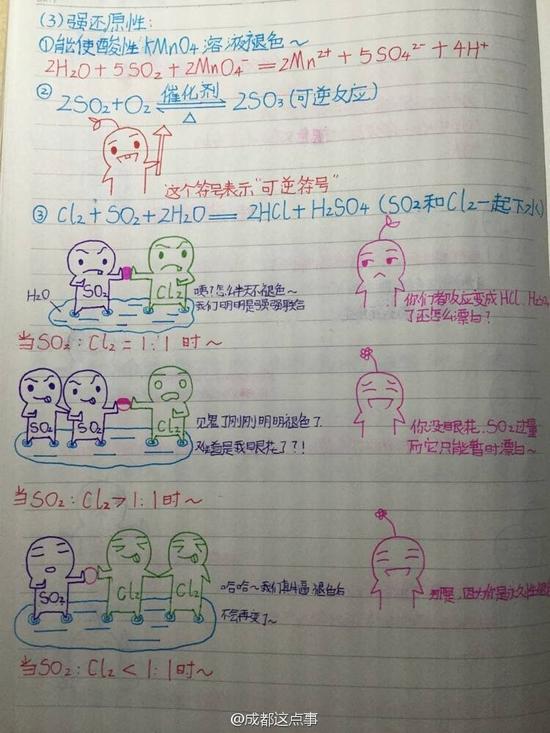 (3)强还原性:
①能使酸性KMnO₄溶液褪色～
2H₂O+5SO₂+2MnO₄⁻=2Mn²⁺+5SO₄²⁻+4H⁺
② 2SO₂+O₂ 催化剂 ⇌ △ 2SO₃(可逆反应)
这个符号表示"可逆符号"
③ Cl₂+SO₂+2H₂O=2HCl+H₂SO₄(SO₂和Cl₂一起下水)
SO₂
Cl₂
H₂O
咦?怎么半天不褪色～
我们明明是强强联合
你们都反应变成HCl、H₂SO₄
了还怎么漂白?
当SO₂:Cl₂=1:1时～
SO₂
SO₂
Cl₂
见鬼了刚刚明明褪色了
难道是我眼花了?!
你没眼花.SO₂过量
所它只能暂时漂白～
当SO₂:Cl₂>1:1时～
SO₂
Cl₂
Cl₂
哈哈～我们真牛逼.褪色后
不会再变了～
那是.因为你是永久性
当SO₂:Cl₂<1:1时～
@成都这点事